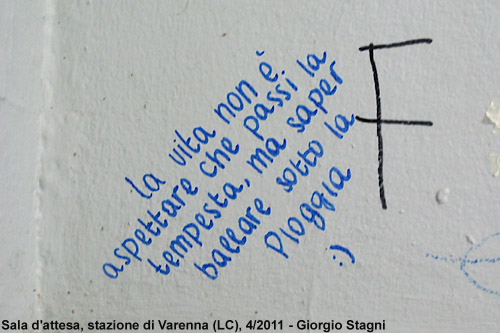 la vita non è
aspettare che passi la
tempesta, ma saper
ballare sotto la
Pioggia
:)
F
Sala d'attesa, stazione di Varenna (LC), 4/2011 - Giorgio Stagni